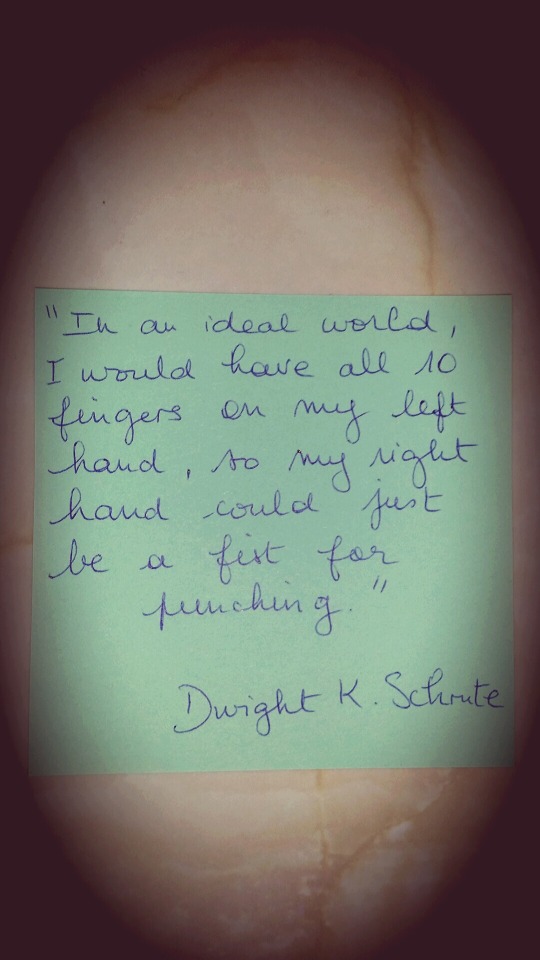 "In an ideal world,
I would have all 10
fingers on my left
hand, so my right
hand could just
be a fist for
punching."
Dwight K. Schrute